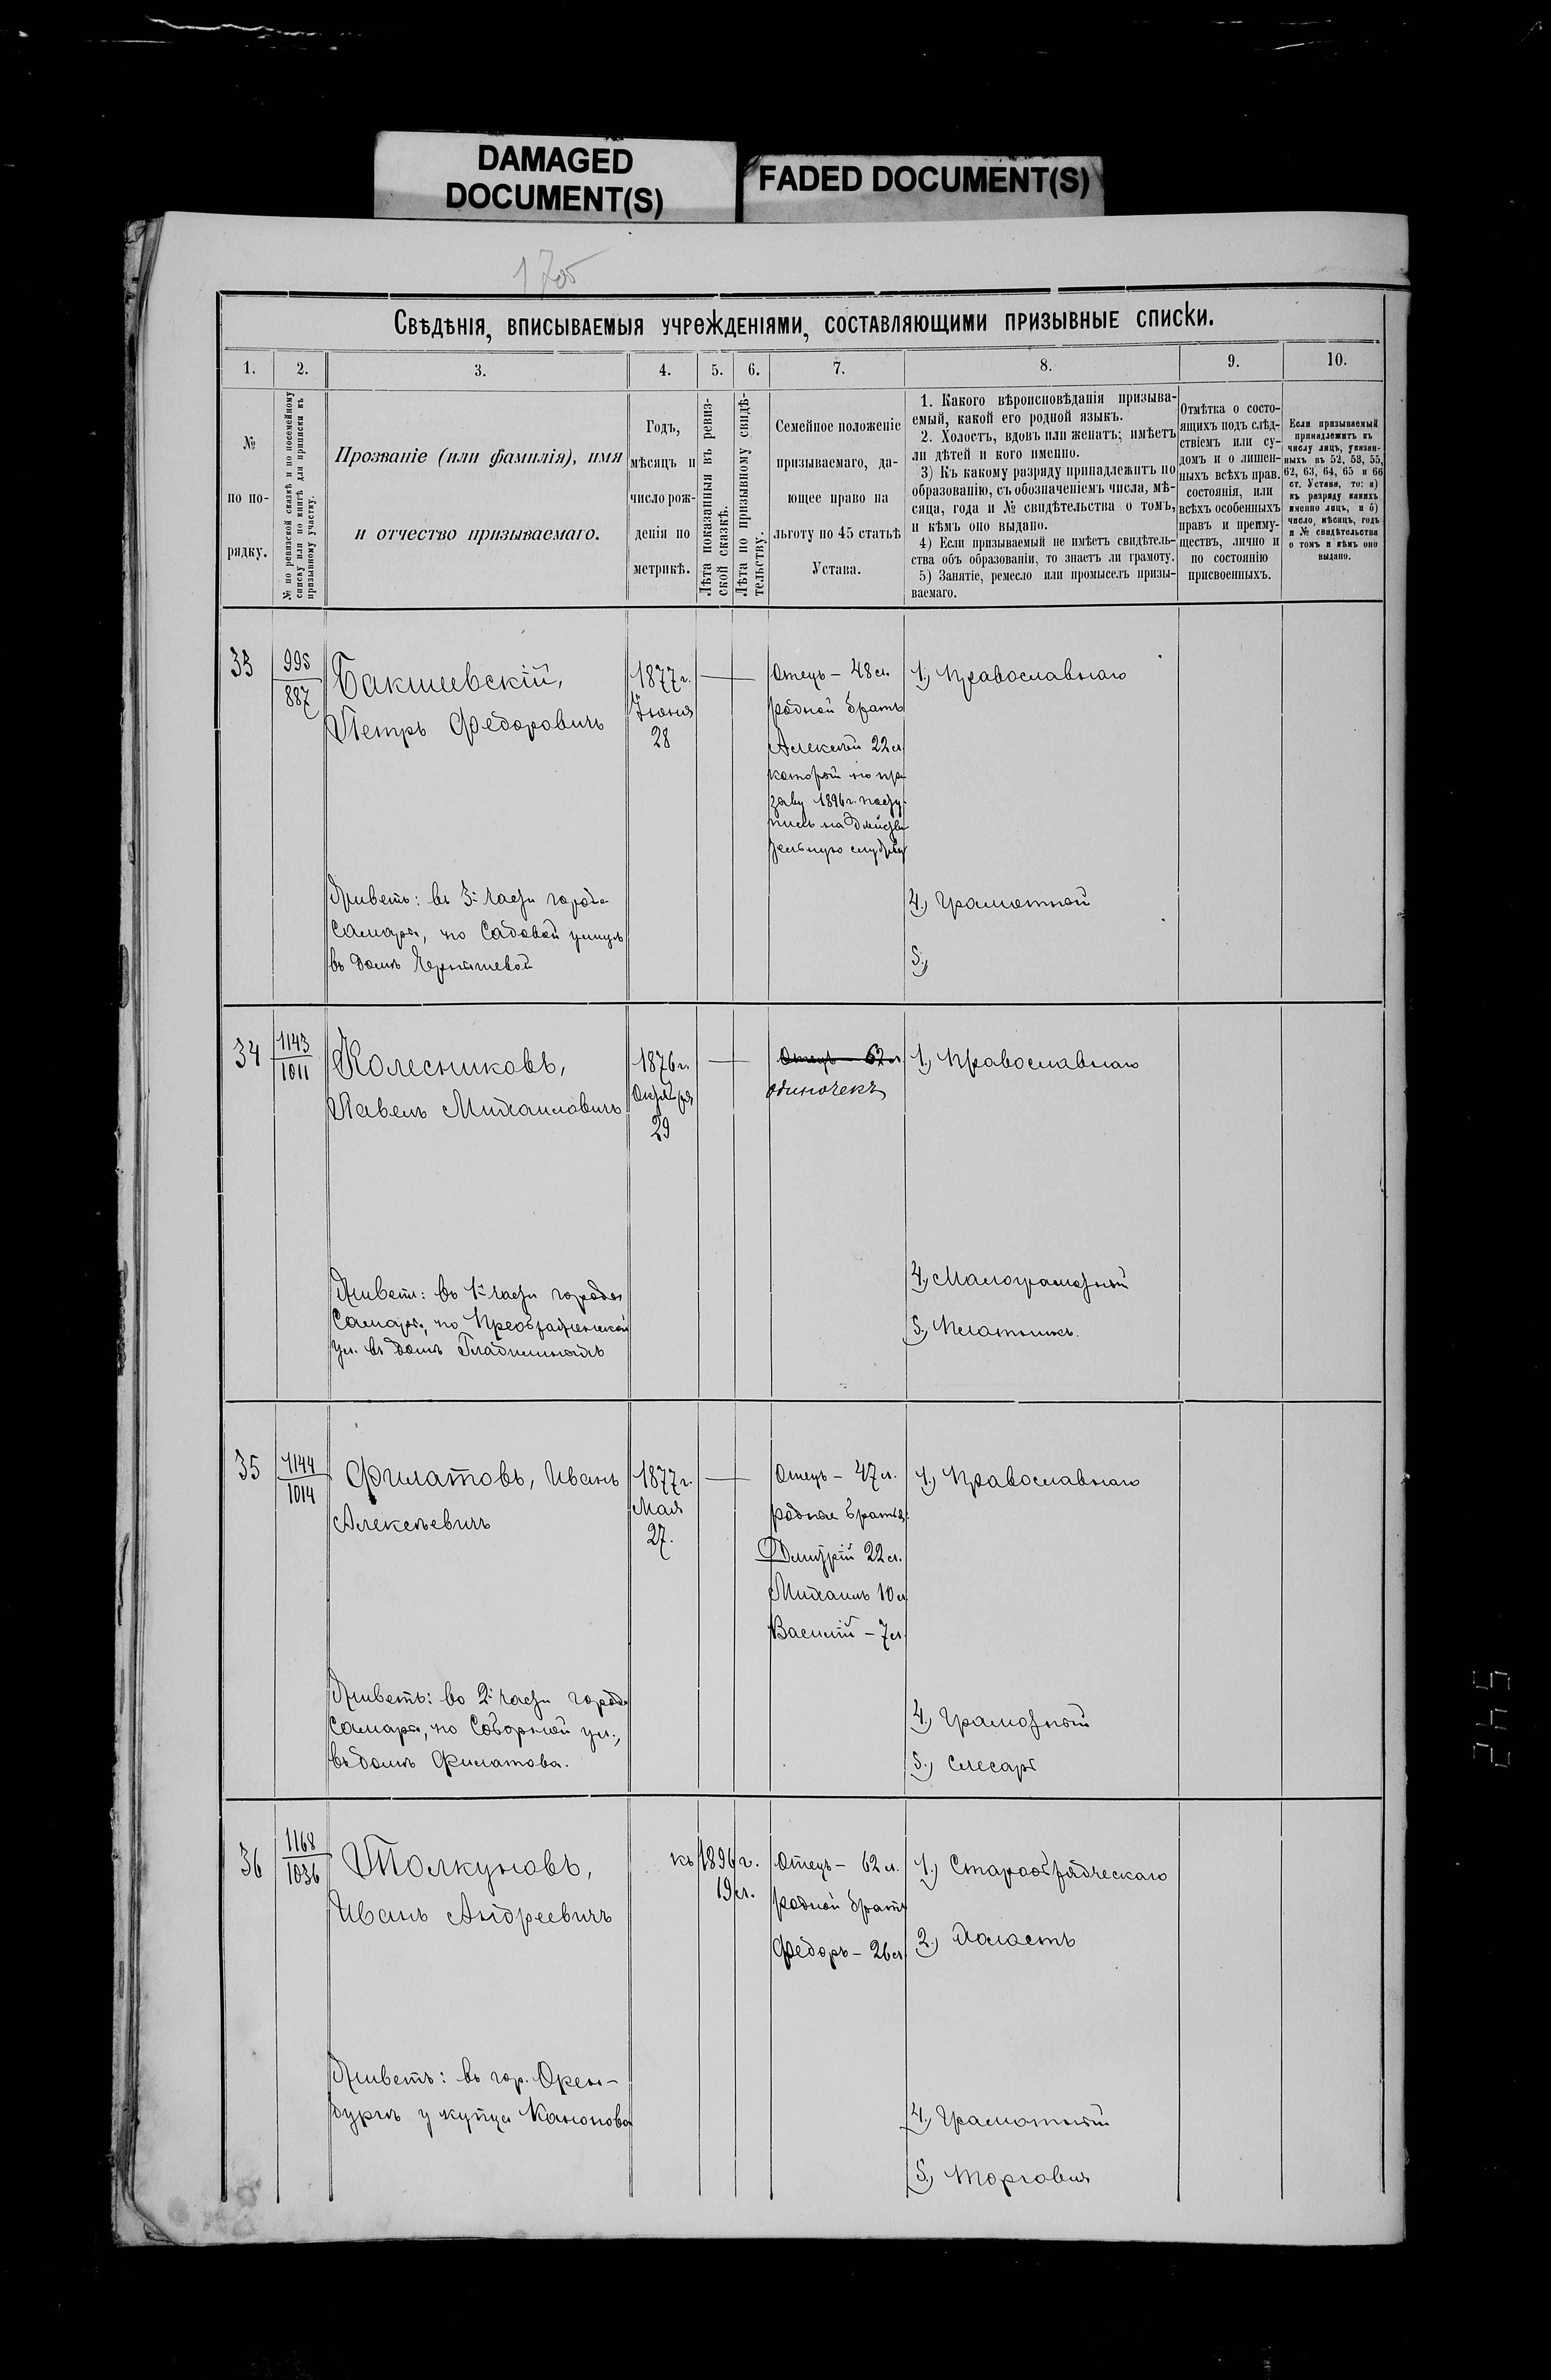 DAMAGED
DOCUMENT(S)
FADED DOCUMENT(S)
Свѣдѣнія, вписываемыя учрежденіями, составляющими призывные списки.
1.
2.
3.
4.
5.
6.
7.
8.
9.
10.
№
по по-
рядку.
№ по ревизской сказкѣ и по посемейному
списку или по книгѣ для приписки къ
призывному участку.
Прозваніе (или фамилія), имя
и отчество призываемаго.
Годъ,
мѣсяцъ и
число рож-
денія по
метрикѣ.
Лѣта показанныя въ ревиз-
ской сказкѣ.
Лѣта по призывному свидѣ-
тельству.
Семейное положеніе
призываемаго, да-
ющее право на
льготу по 45 статьѣ
Устава.
1. Какого вѣроисповѣданія призыва-
емый, какой его родной языкъ.
2. Холостъ, вдовъ или женатъ; имѣетъ
ли дѣтей и кого именно.
3) Къ какому разряду принадлежитъ по
образованію, съ обозначеніемъ числа, мѣ-
сяца, года и № свидѣтельства о томъ,
и кѣмъ оно выдано.
4) Если призываемый не имѣетъ свидѣтель-
ства объ образованіи, то знаетъ ли грамоту.
5) Занятіе, ремесло или промыселъ призы-
ваемаго.
Отмѣтка о состо-
ящихъ подъ слѣд-
ствіемъ или су-
домъ и о лишен-
ныхъ всѣхъ прав.
состоянія, или
всѣхъ особенныхъ
правъ и преиму-
ществъ, лично и
по состоянію
присвоенныхъ.
Если призываемый
принадлежитъ къ
числу лицъ, указан-
ныхъ въ 52, 53, 55,
62, 63, 64, 65 и 66
ст. Устава, то: а)
къ разряду какихъ
именно лицъ, и б)
число, мѣсяцъ, годъ
и № свидѣтельства
о томъ и кѣмъ оно
выдано.
33
995
887
Бакшеевскій,
Петръ Федоровичъ
1877 г.
Іюня
28
Отецъ – 48 л.
родной братъ
Алексѣй 22 л.
который по при
зыву 1896 г. посту
пилъ на дѣйстви
тельную службу
1.) Православнаго
Живетъ: въ 3й части города
Самары, по Садовой улицѣ
въ домѣ Чернышевой
4.) Грамотный
5.)
34
1143
1011
Колесниковъ,
Павелъ Михаиловичъ
1876 г.
Октября
29
Отецъ – 62 л.
одиночекъ
1.) Православнаго
Живетъ: въ 1й части города
Самары, по Преображенской
ул. въ домѣ
4.) Малограмотный
5.) Плотникъ.
35
1144
1014
Филатовъ, Иванъ
Алексѣевичъ
1877 г.
Мая
27.
Отецъ – 47 л.
родные братья:
Дмитрій 22 л.
Михаилъ 10 л.
Василій – 7 л.
1.) Православнаго
Живетъ: во 2й части города
Самары, по Соборной ул.,
въ домѣ Филатова.
4.) Грамотный
5.) Слесарь
36
1168
1036
Толкуновъ,
Иванъ Андреевичъ
къ 1896 г.
19 л.
Отецъ – 62 л.
родной братъ
Федоръ – 26 л.
1.) Старообрядческаго
2.) Холостъ
Живетъ: въ гор. Орен-
бургѣ у купца Канонова
4.) Грамотный
5.) Торговля
245